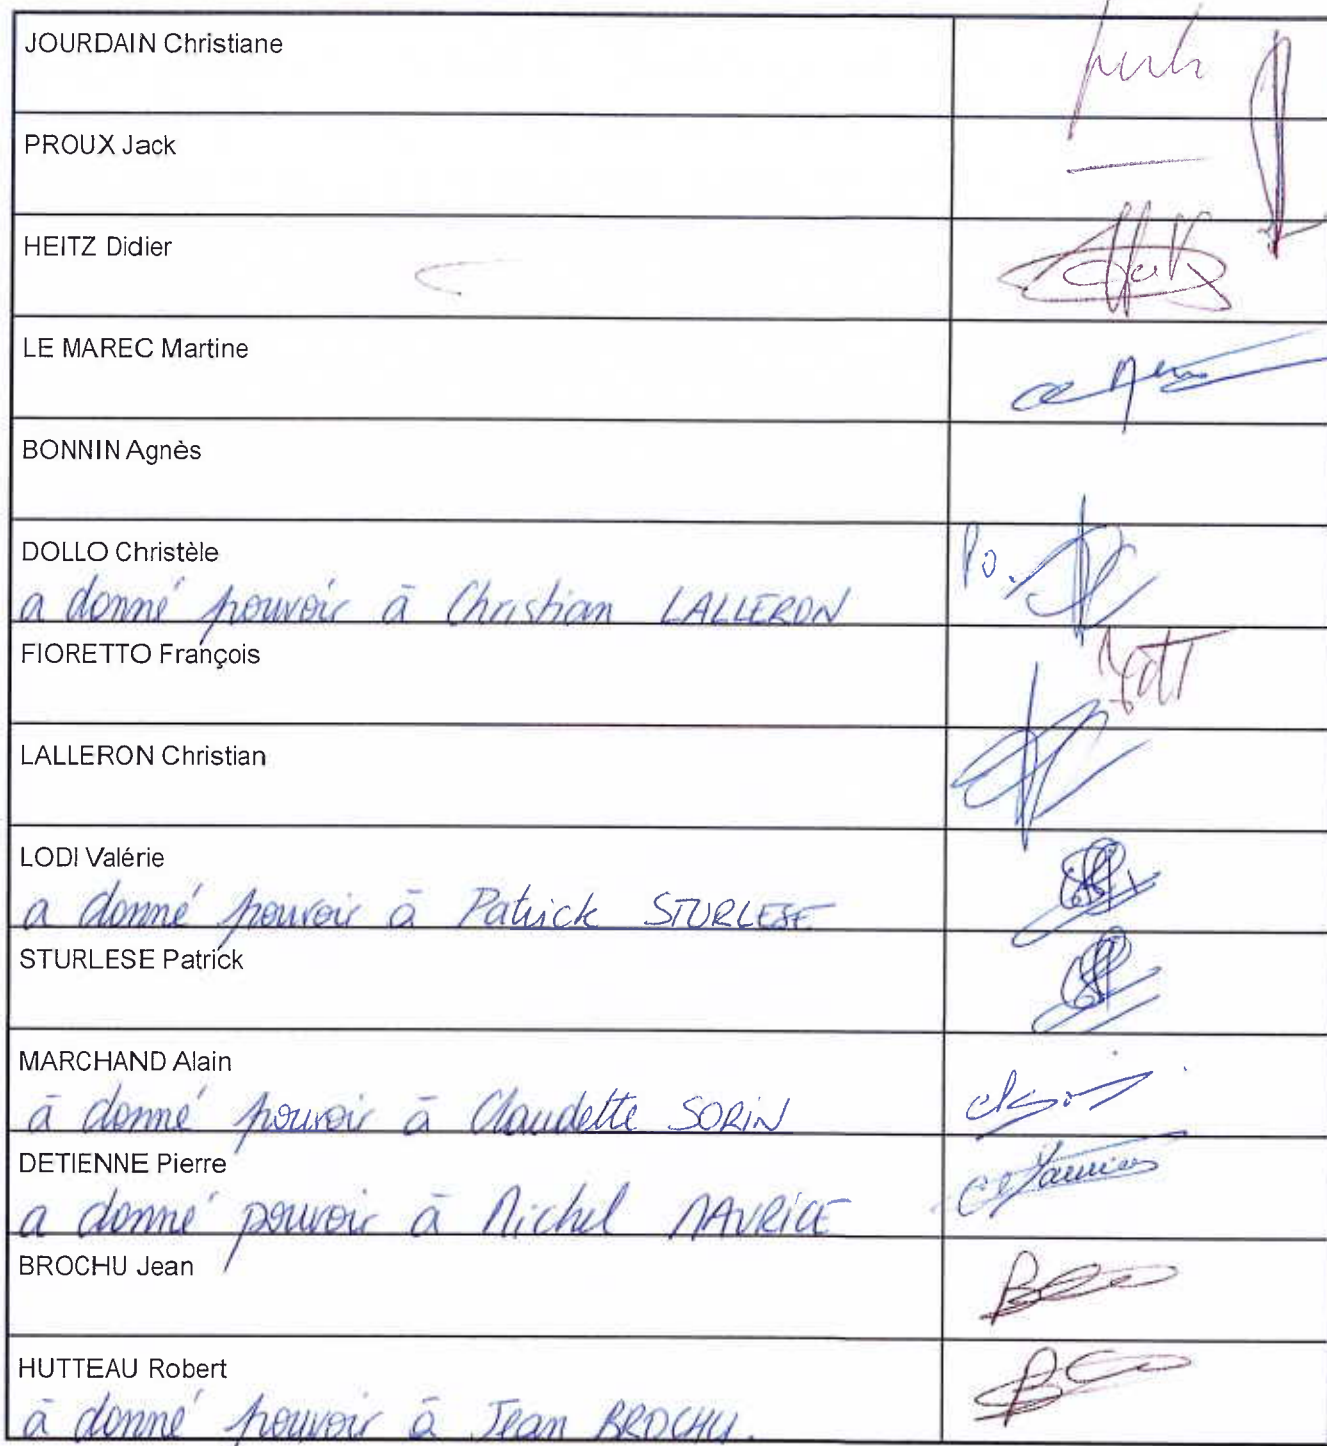 JOURDAIN Christiane
PROUX Jack
HEITZ Didier
LE MAREC Martine
BONNIN Agnès
DOLLO Christèle
Po.
a donné pouvoir à Christian LALLERON
FIORETTO François
LALLERON Christian
LODI Valérie
a donné pouvoir à Patrick STURLESE
STURLESE Patrick
MARCHAND Alain
à donné pouvoir à Claudette SORIN
DETIENNE Pierre
a donné pouvoir à Michel MAURICE
BROCHU Jean
HUTTEAU Robert
à donné pouvoir à Jean BROCHU.